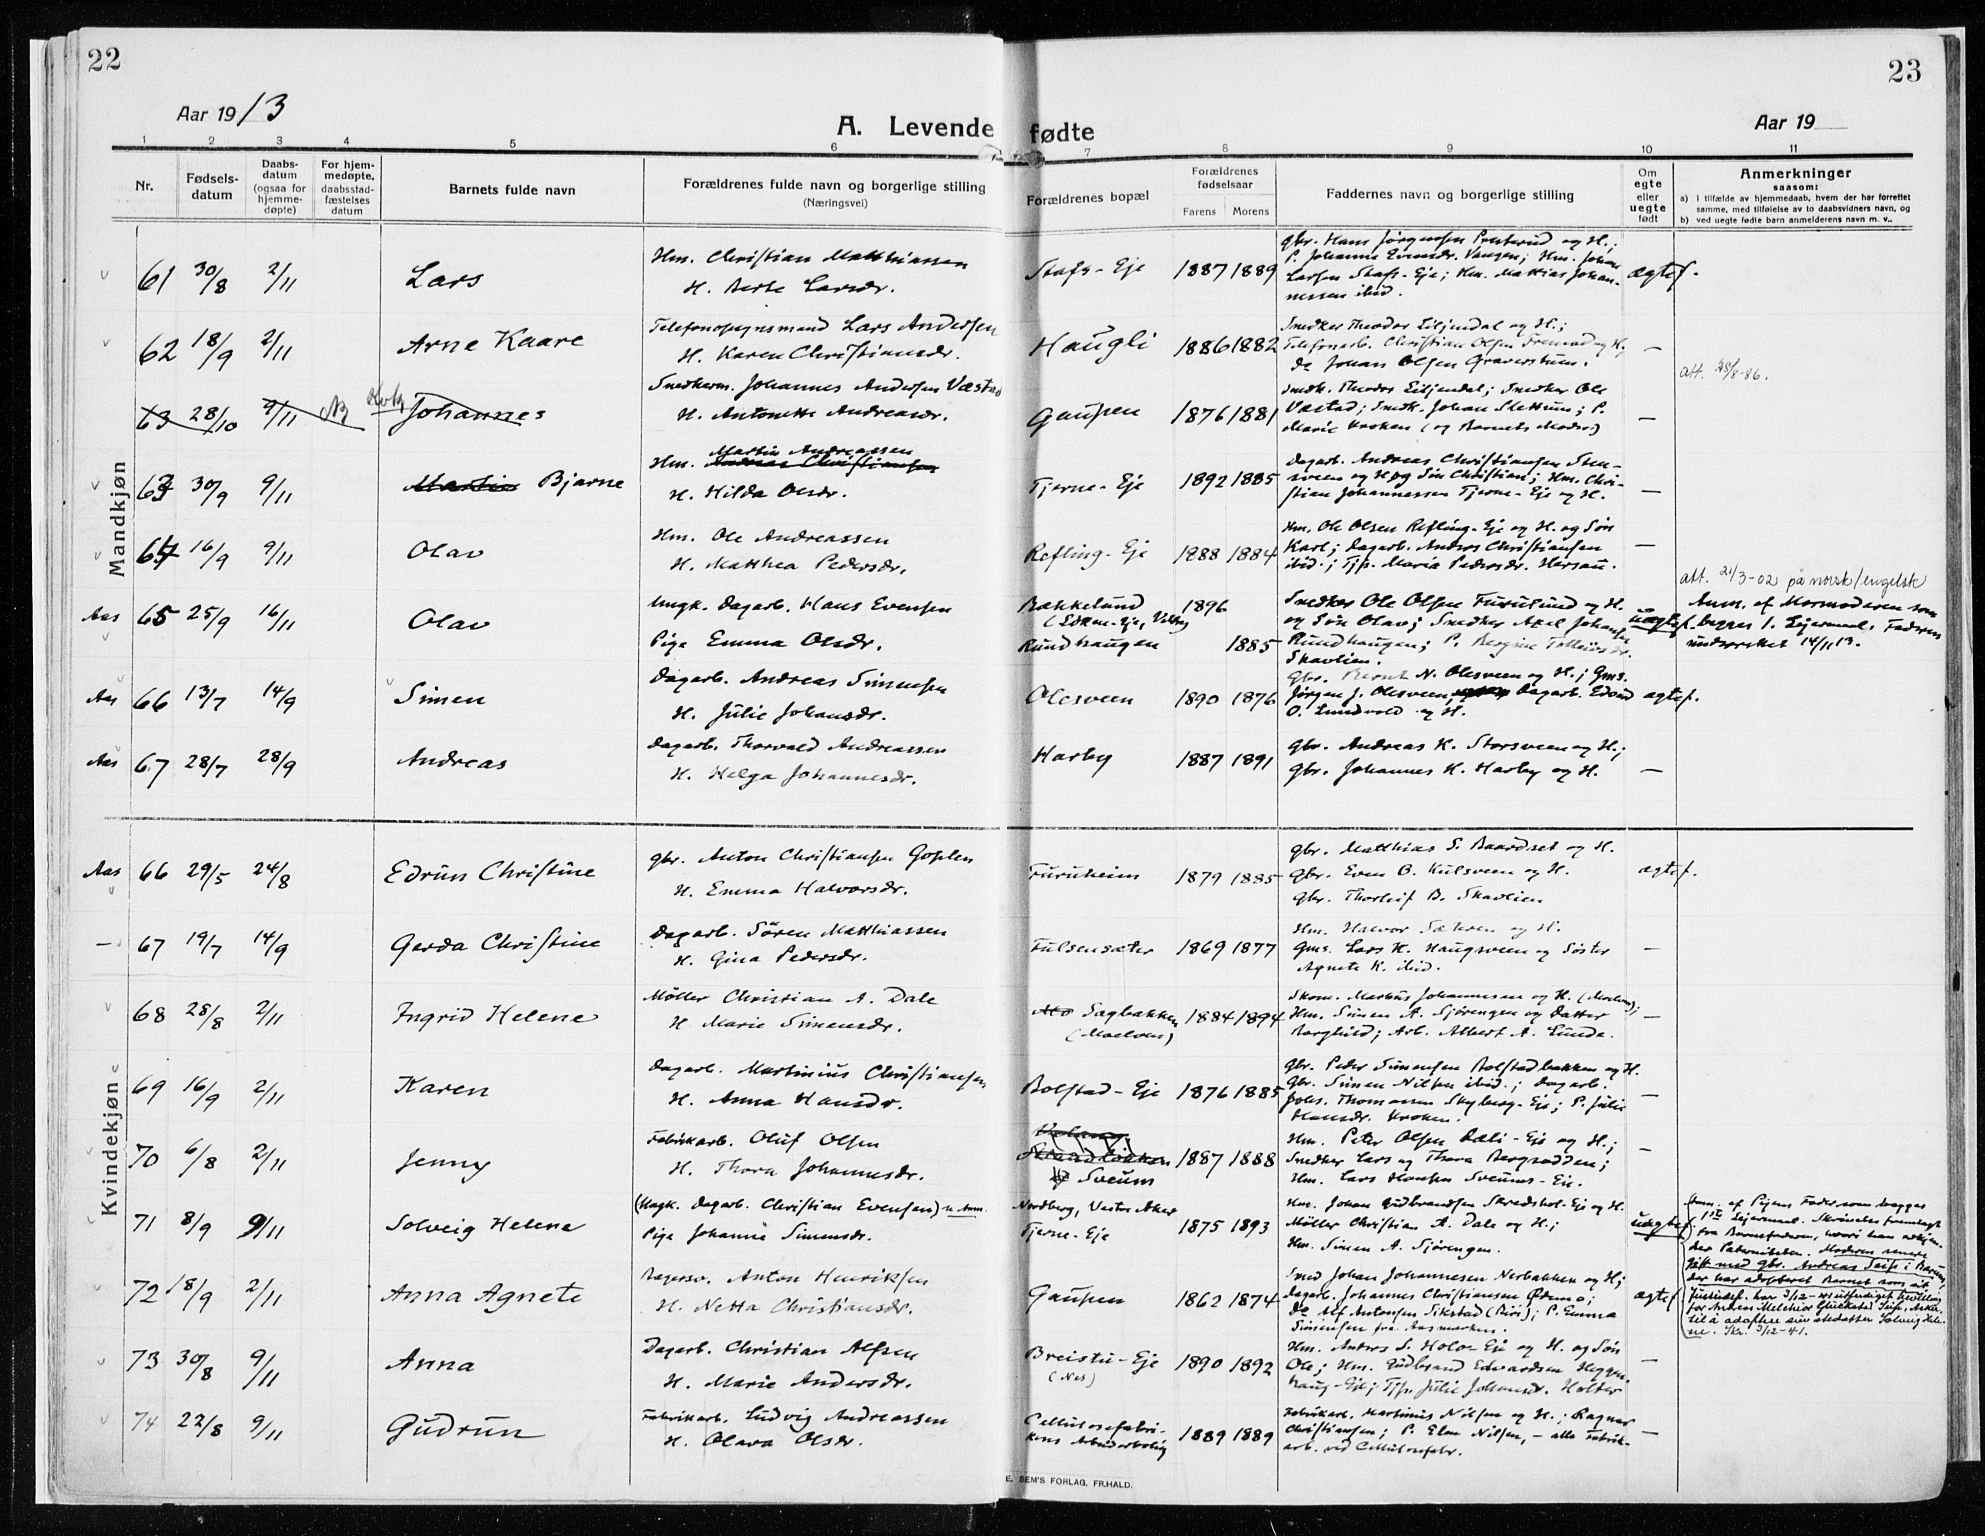 22
23
Aar 1913
A. Levende fødte
Aar 19
1 2 3 4 5 6 7 8 9 10 11
Nr.
Fødsels-
datum
Daabs-
datum
(ogsaa for
hjemme-
døpte)
For hjem-
medøpte,
daabsstad-
fæstelses
datum
Barnets fulde navn
Forældrenes fulde navn og borgerlige stilling
(Næringsvei)
Forældrenes bopæl
Forældrenes
fødselsaar
Farens Morens
Faddernes navn og borgerlige stilling
Om
egte
eller
uegte
født
Anmerkninger
saasom:
a) i tilfælde av hjemmedaab, hvem der har forrettet
samme, med tilføielse av to daabsvidners navn, og
b) ved uegte fødte barn anmelderens navn m. v..
Mandkjøn
61 30/8 2/11 Lars
Hm. Christian Matthiassen
H. Berte Larsdr.
Stafs-Eje 1887 1889
gbr. Hans Jørgensen Presterud og H.;
P. Johanne Evensdr. Vangen; Hm. Johan
Larsen Stafs-Eje; Hm. Mathias Johan-
nessen ibid.
ægtef.
62 18/9 2/11 Arne Kaare
Telefonopsynsmand Lars Andersen
H. Karen Christiansdr.
Haugli 1886 1882
Snedker Theodor Liljendal og H.;
Telefonarb. Christian Olsen Fremad og H;
do Johan Olsen Graverstuen.
—
att. 28/8-86.
63 28/10 2/11 Johannes
Snedkerm. Johannes Andersen Væstad
H. Antonette Andreasdr.
Gaupen 1876 1881
Snedk. Theodor Liljendal; Snedker Ole
Væstad; Snedk. Johan Slettum; P.
Marie Kroken (og Barnets Moder)
—
63 30/9 9/11 Martin Bjarne
Martin Andreassen
Hm. Andreas Christiansen
H. Hilda Olsdr.
Tjerne-Eje 1892 1885
Dagarb. Andreas Christiansen Sten-
sveen og H og Søn Christian; Hm. Chri-
stian Johannessen Tjerne-Eje og H.
—
64 16/9 9/11 Olav
Hm. Ole Andreassen
H. Matthea Pedersdr.
Refling-Eje 1888 1884
Hm. Ole Olsen Refling-Eje og H. og Søn
Karl; Dagarb. Anders Christiansen
ibid.; Tjp. Maria Pedersdr. Hersau.
—
att. 21/3-02 på norsk/engelsk
Aas 65 25/9 16/11 Olav
Ungk. Dagarb. Hans Evensen
Pige Emma Olsdr.
Bakkelund 1896
Rundhaugen 1885
Snedker Ole Olsen Furulund og H.
og Søn Olav; Snedker Axel Johansen
Rundhaugen; P. Bergine Tollefsdr.
Skavlien.
uægtef.
Anm. af Mormoderen som
begges 1. Leiermaal. Faderen
underrettet 14/11 13.
Aas 66 13/7 14/9 Simen
Dagarb. Andreas Simensen
H. Julie Johansdr.
Olesveen 1890 1876
gbr. Bernt N. Olesveen og H.; Gms.
Jørgen J. Olesveen, Dagarb. Edvard
O. Lundvold og H.
ægtef.
Aas 67 28/7 28/9 Andreas
Dagarb. Thorvald Andreassen
H. Helga Johannesdr.
Harby 1887 1891
gbr. Andreas K. Storsveen og H.;
gbr. Johannes H. Harby og H.
—
Kvindekjøn
Aas 66 29/5 24/8 Edrun Christine
gbr. Anton Christiansen Goplen
H. Emma Halvorsdr.
Furuheim 1879 1885
gbr. Matthias S. Baardset og H.
gbr. Even O. Kulsveen og H.
gbr. Thorleif B. Skavlien
ægtef.
— 67 19/7 14/9 Gerda Christine
Dagarb. Søren Matthiassen
H. Gina Pedersdr.
Fulsensæter 1869 1877
Hm. Halvor Sæteren og H.
Gms. Lars K. Haugsveen og Søster
Agnete K. ibid.
—
68 28/8 2/11 Ingrid Helene
Møller Christian A. Dale
H Marie Simensdr.
Mo Sagbakken
(Moelven)
1884 1894
Skom. Markus Johannesen og H. (Moelven);
Hm. Simen A. Sjørengen og Datter
Borghild; Arb. Albert A. Lunde.
—
69 16/9 2/11 Karen
Dagarb. Martinius Christiansen
H. Anna Hansdr.
Bolstad-Eje 1876 1885
gbr. Peder Simensen Bolstadbakken og H.
gbr. Simen Nilsen ibid.; Dagarb.
Johs. Thomassen Skyberg-Eje; P. Julie
Hansdr. Kroken.
—
70 6/8 2/11 Jenny
Fabrikarb. Oluf Olsen
H. Thora Johannesdr.
Strandbakken
Sveum
1887 1888
Hm. Peter Olsen Dæli-Eje og H.;
Snedker Lars og Thora Bergsodden;
Hm. Lars Hansen Sveums-Eie.
—
71 8/9 9/11 Solveig Helene
(Ungk. Dagarb. Christian Evensen) se Anm.
Pige Johanne Simensdr.
Nordberg, Vestre Aker
Tjerne-Eje
1875 1893
Hm. Johan Gudbrandsen Skredshol-Eje og H.
Møller Christian A. Dale og H.;
Hm. Simen A. Sjørengen.
uægtef.
Anm. af Pigens Fader som begges
1ste Leiermaal. Skrivelse fremlagt
fra Barnefaderen, hvori han vedkjen-
der Paterniteten. Moderen senere
gift med gbr. Andreas Seip i Bærum,
der har adopteret Barnet som sit
72 18/9 2/11 Anna Agnete
Bagersv. Anton Henriksen
H. Netta Christiansdr.
Gaupen 1862 1874
Smed Johan Johannesen Nerbakken og H;
Dagarb. Johannes Christiansen Ødemo;
do Alf Antonsen Sikstad (Biri); P. Emma
Simensen fra Aasmarken.
ægtef.
til å adoptere sin stedatter Solveig Hele-
ne. Skr. 3/12-41.
73 30/8 9/11 Anna
Dagarb. Christian Alfsen
H. Marie Andersdr.
Breistu-Eje
(Nes)
1890 1892
Hm. Anders S. Holoe-Eje og H. og Søn
Ole; Hm. Gudbrand Edvardsen Heggen-
haug-Eie; Tjp. Julie Johansdr. Holter
—
74 22/8 9/11 Gudrun
Fabrikarb. Ludvig Andreassen
H. Olava Olsdr.
Cellulosefabri-
kens Arbeiderbolig
1889 1889
Fabrikarb. Martinus Nilsen og H.; Ragnar
Christiansen; P. Elen Nilsen, — alle Fabrik-
arb. ved Cellulosefabr.
—
E. SEM'S FORLAG, FR.HALD.